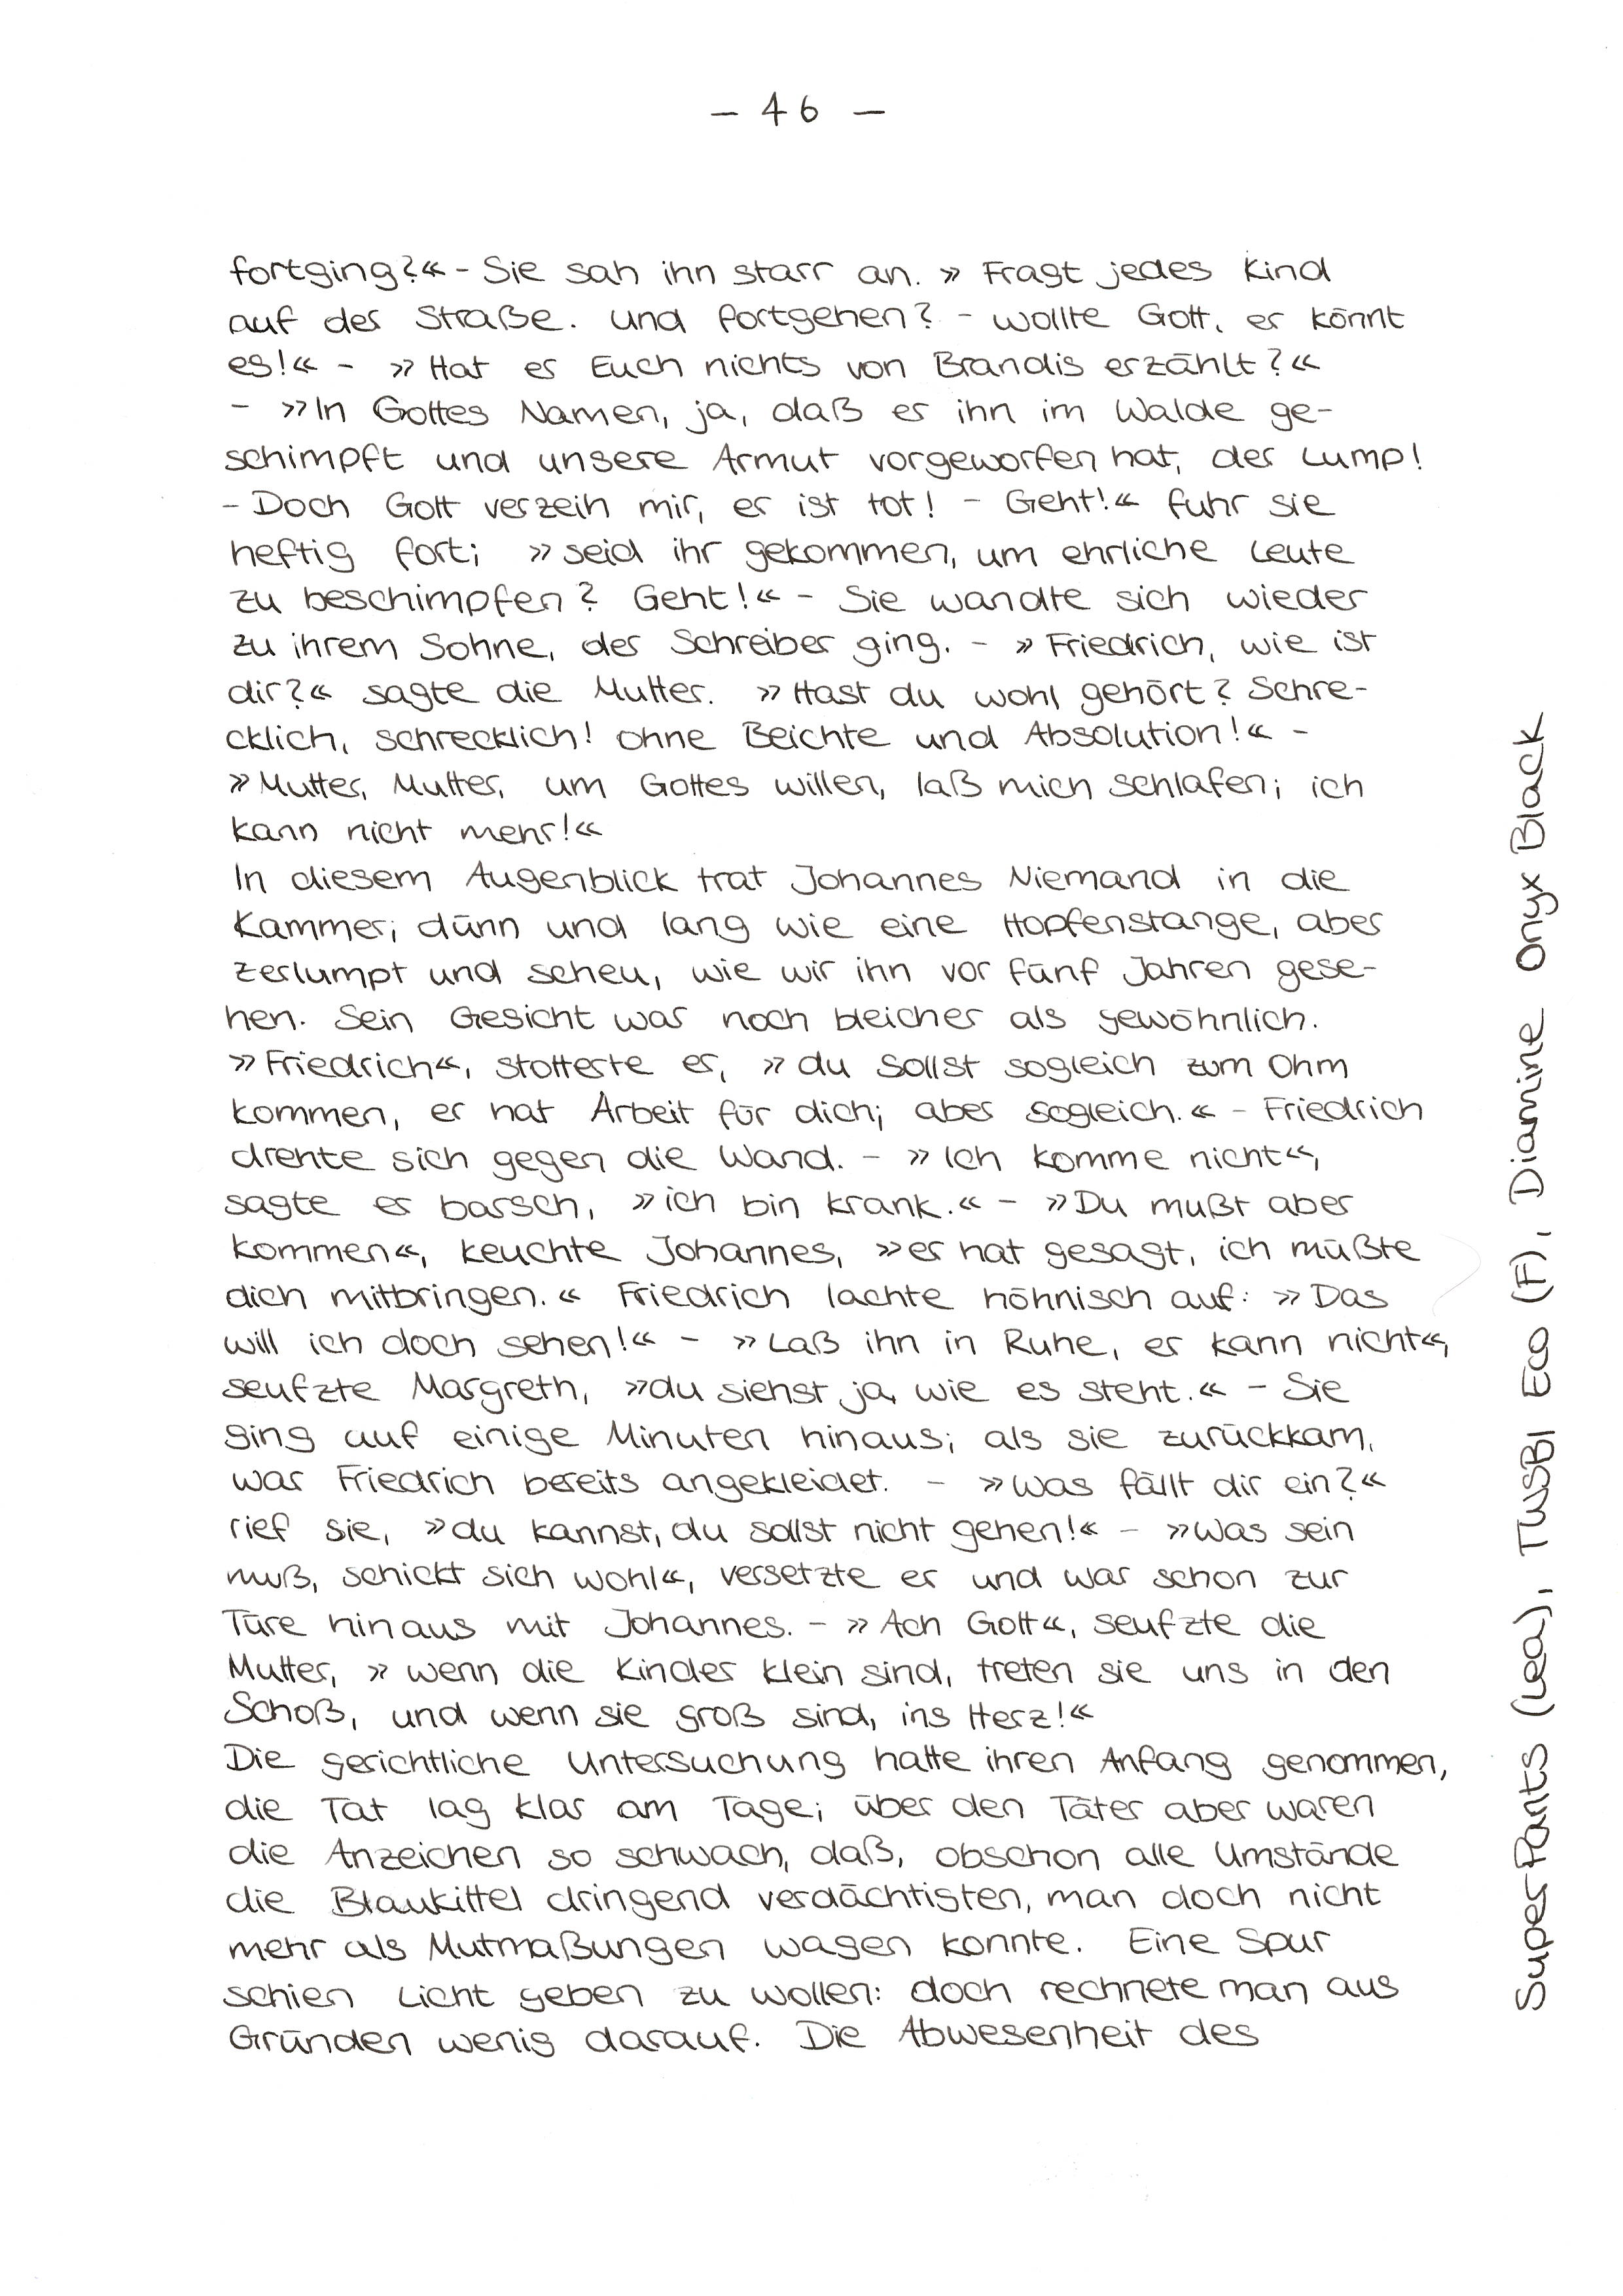 – 46 –
fortging?« – Sie sah ihn starr an. » Fragt jedes Kind
auf der Straße. Und fortgehen? – wollte Gott, er könnt
es!« – » Hat er Euch nichts von Brandis erzählt?«
– »In Gottes Namen, ja, daß er ihn im Walde ge-
schimpft und unsere Armut vorgeworfen hat, der Lump!
– Doch Gott verzeih mir, er ist tot! – Geht!« fuhr sie
heftig fort; » seid ihr gekommen, um ehrliche Leute
zu beschimpfen? Geht!« – Sie wandte sich wieder
zu ihrem Sohne, der Schreiber ging. – » Friedrich, wie ist
dir?« sagte die Mutter. » Hast du wohl gehört? Schre-
cklich, schrecklich! ohne Beichte und Absolution!« –
» Mutter, Mutter, um Gottes willen, laß mich schlafen; ich
kann nicht mehr!«
In diesem Augenblick trat Johannes Niemand in die
Kammer; dünn und lang wie eine Hopfenstange, aber
zerlumpt und scheu, wie wir ihn vor fünf Jahren gese-
hen. Sein Gesicht war noch bleicher als gewöhnlich.
» Friedrich«, stotterte er, » du sollst sogleich zum Ohm
kommen, er hat Arbeit für dich; aber sogleich.« – Friedrich
drehte sich gegen die Wand. – » Ich komme nicht«,
sagte er barsch, » ich bin krank.« – » Du mußt aber
kommen«, keuchte Johannes, » er hat gesagt, ich müßte
dich mitbringen.« Friedrich lachte höhnisch auf: » Das
will ich doch sehen!« – » Laß ihn in Ruhe, er kann nicht«,
seufzte Margreth, » du siehst ja, wie es steht.« – Sie
ging auf einige Minuten hinaus; als sie zurückkam,
war Friedrich bereits angekleidet. – » Was fällt dir ein?«
rief sie, » du kannst, du sollst nicht gehen!« – » Was sein
muß, schickt sich wohl«, versetzte er und war schon zur
Türe hinaus mit Johannes. – » Ach Gott«, seufzte die
Mutter, » wenn die Kinder klein sind, treten sie uns in den
Schoß, und wenn sie groß sind, ins Herz!«
Die gerichtliche Untersuchung hatte ihren Anfang genommen,
die Tat lag klar am Tage; über den Täter aber waren
die Anzeichen so schwach, daß, obschon alle Umstände
die Blaukittel dringend verdächtigten, man doch nicht
mehr als Mutmaßungen wagen konnte. Eine Spur
schien Licht geben zu wollen: doch rechnete man aus
Gründen wenig darauf. Die Abwesenheit des
SuperPants (Lea), TWSBI Eco (F), Diamine Onyx Black